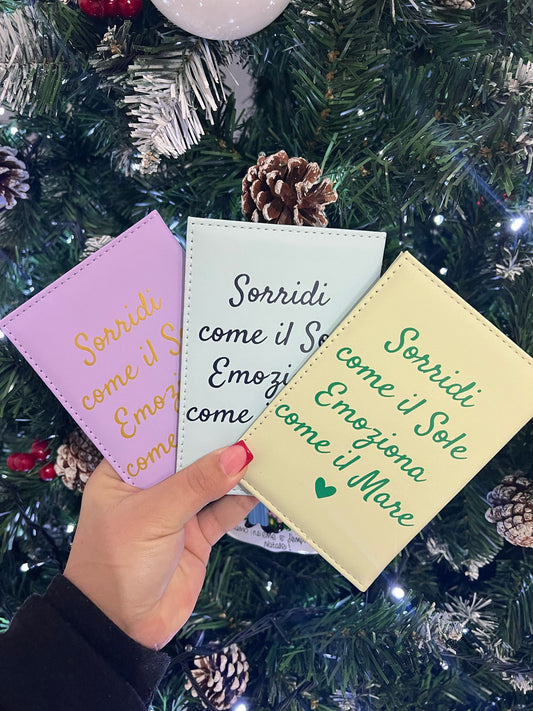 Sorridi
come il S
Emozi
com
Sorridi
come il So
Emozi
come i
Sorridi
come il Sole
Emoziona
come il Mare